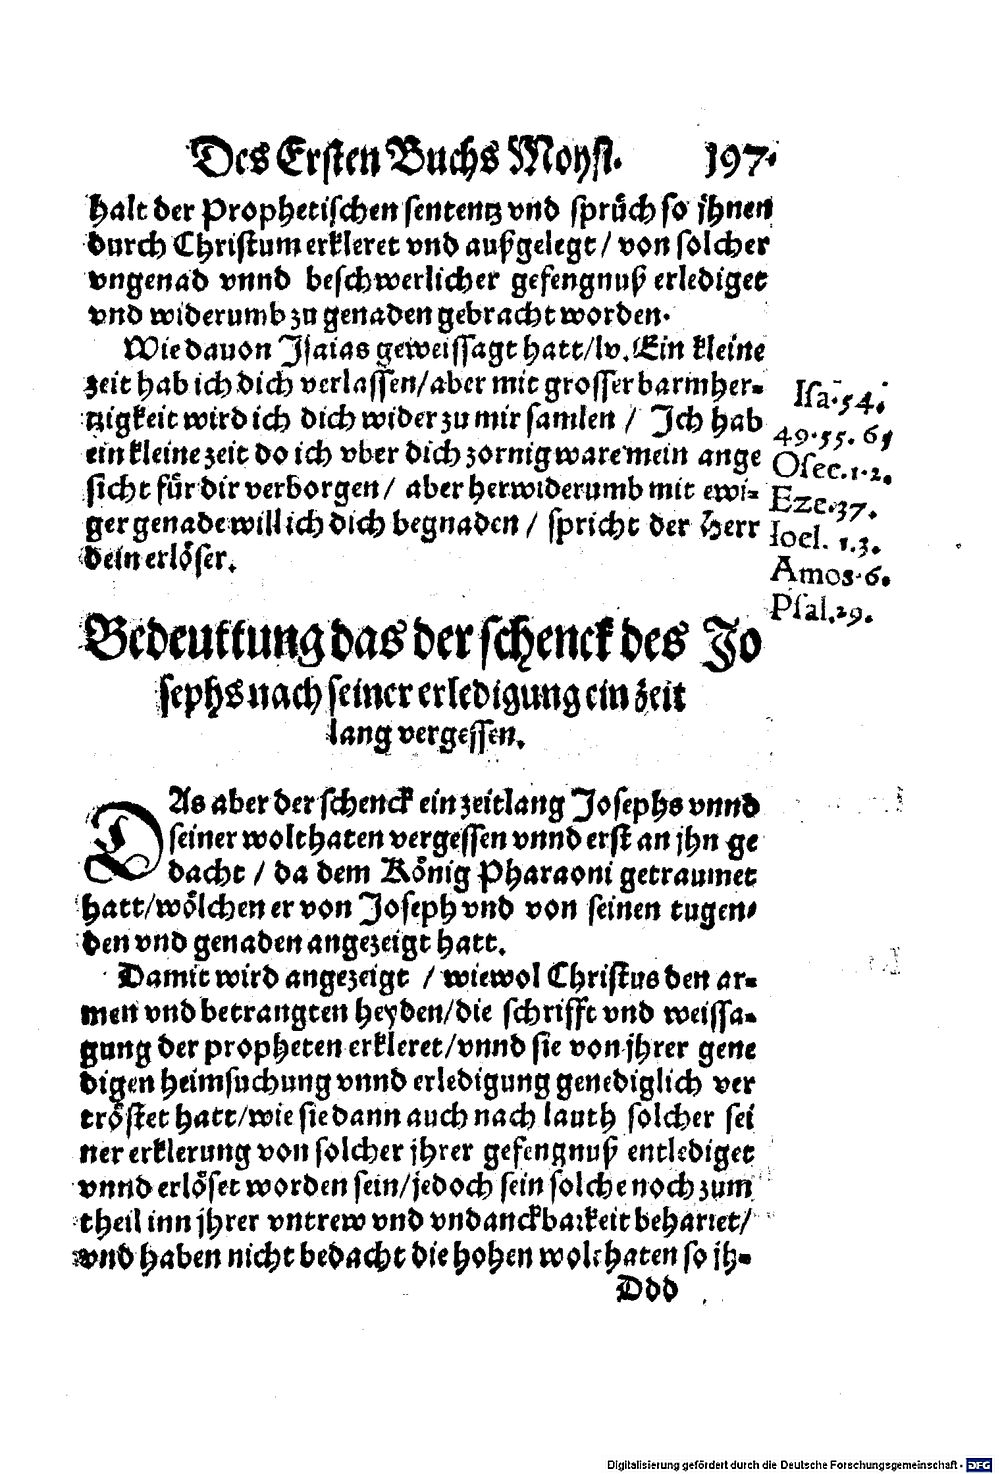 Des Ersten Buchs Moysi. 197.
halt der Prophetischen sententz vnd sprüch so jhnen
durch Christum erkleret vnd außgelegt / von solcher
vngenad vnnd beschwerlicher gefengnuß erlediget
vnd widerumb zu genaden gebracht worden.
Wie dauon Jsaias geweissagt hatt/lv. Ein kleine
zeit hab ich dich verlassen/aber mit grosser barmher-
tzigkeit wird ich dich wider zu mir samlen / Jch hab
ein kleine zeit do ich vber dich zornig ware mein ange
sicht für dir verborgen / aber herwiderumb mit ewi-
ger genade will ich dich begnaden / spricht der Herr
dein erlöser.
Isa. 54.
49. 55. 61
Osec. 1. 2.
Eze. 37.
Ioel. 1. 3.
Amos. 6.
Psal. 29.
Bedeuttung das der schenck des Jo
sephs nach seiner erledigung ein zeit
lang vergessen.
DAs aber der schenck ein zeitlang Josephs vnnd
seiner wolthaten vergessen vnnd erst an jhn ge
dacht / da dem König Pharaoni getraumet
hatt/wölchen er von Joseph vnd von seinen tugen-
den vnd genaden angezeigt hatt.
Damit wird angezeigt / wiewol Christus den ar-
men vnd betrangten heyden/die schrifft vnd weissa-
gung der propheten erkleret/vnnd sie von jhrer gene
digen heimsuchung vnnd erledigung genediglich ver
tröstet hatt/wie sie dann auch nach lauth solcher sei
ner erklerung von solcher jhrer gefengnuß entlediget
vnnd erlöset worden sein/jedoch sein solche noch zum
theil inn jhrer vntrew vnd vndanckbarkeit beharret/
vnd haben nicht bedacht die hohen wolthaten so jh-
Ddd
Digitalisierung gefördert durch die Deutsche Forschungsgemeinschaft - DFG